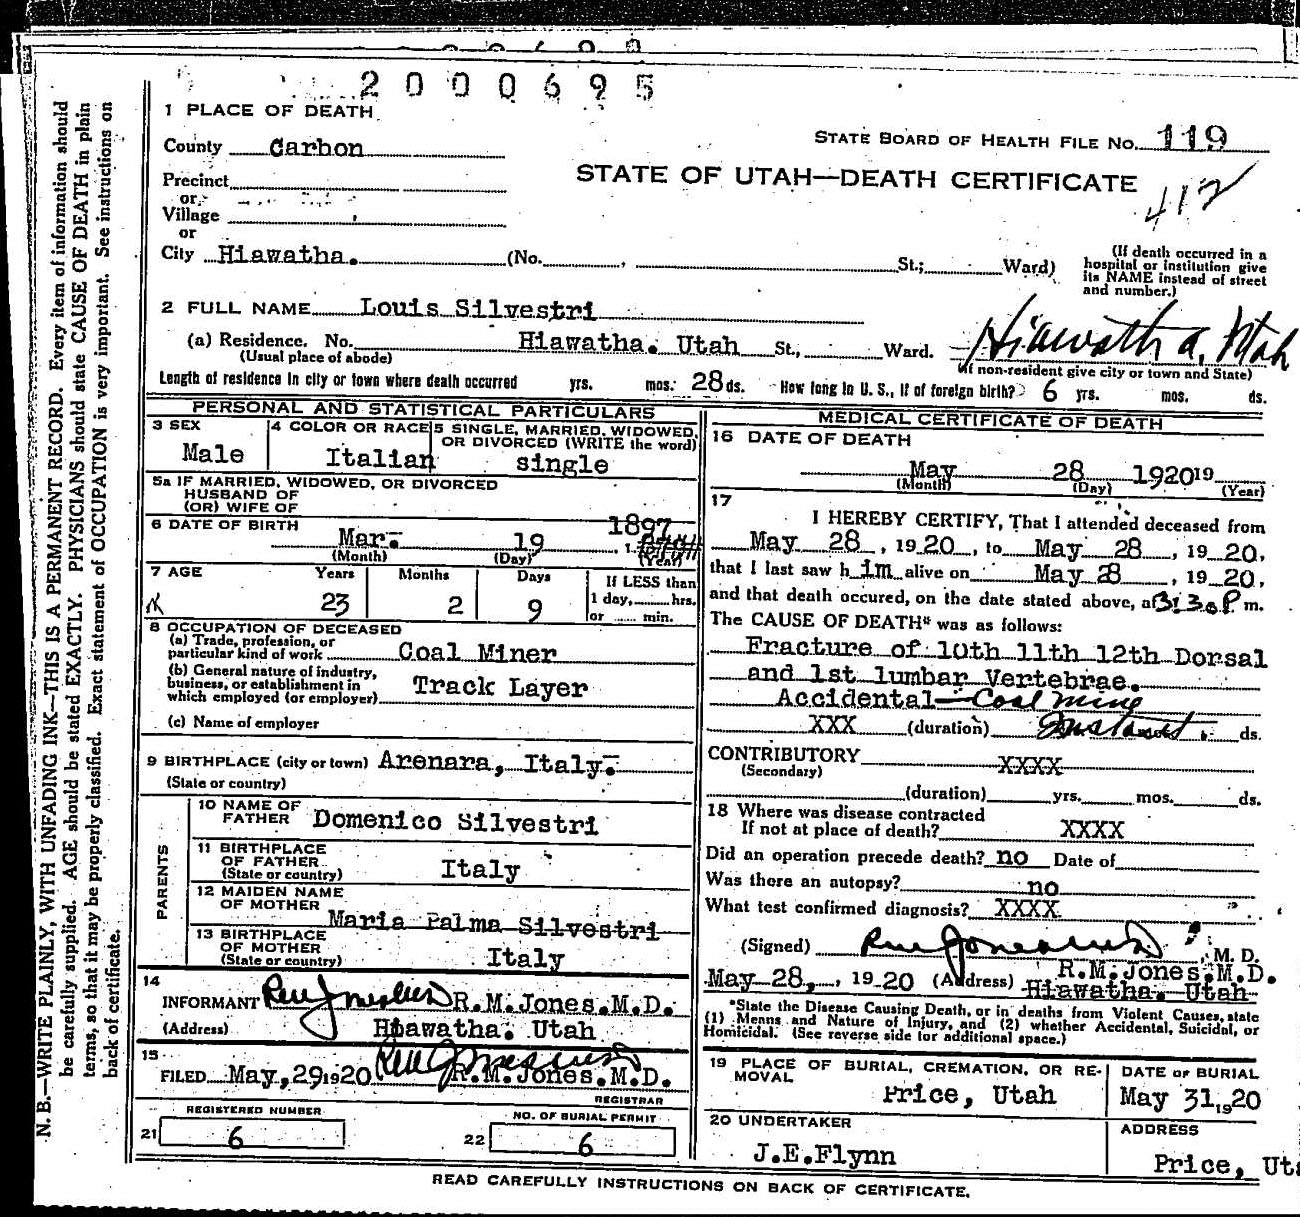 2000695
1 PLACE OF DEATH
STATE BOARD OF HEALTH FILE NO. 119
County Carbon
STATE OF UTAH—DEATH CERTIFICATE
412
Precinct
or
Village
or
City Hiawatha. (No. , St.; Ward)
(If death occurred in a
hospital or institution give
its NAME instead of street
and number.)
2 FULL NAME Louis Silvestri
(a) Residence. No. Hiawatha. Utah St., Ward. Hiawatha, Utah
(Usual place of abode) (If non-resident give city or town and State)
Length of residence in city or town where death occurred yrs. mos. 28 ds. How long in U. S., if of foreign birth? 6 yrs. mos. ds.
PERSONAL AND STATISTICAL PARTICULARS
3 SEX
Male
4 COLOR OR RACE
Italian
5 SINGLE, MARRIED, WIDOWED,
OR DIVORCED (WRITE the word)
single
5a IF MARRIED, WIDOWED, OR DIVORCED
HUSBAND OF
(OR) WIFE OF
6 DATE OF BIRTH
Mar. 19 , 1897
(Month) (Day) (Year)
7 AGE Years Months Days
23 2 9
If LESS than
1 day, hrs.
or min.
8 OCCUPATION OF DECEASED
(a) Trade, profession, or
particular kind of work Coal Miner
(b) General nature of industry,
business, or establishment in
which employed (or employer) Track Layer
(c) Name of employer
9 BIRTHPLACE (city or town) Arenara, Italy.
(State or country)
PARENTS
10 NAME OF
FATHER Domenico Silvestri
11 BIRTHPLACE
OF FATHER
(State or country) Italy
12 MAIDEN NAME
OF MOTHER
Maria Palma Silvestri
13 BIRTHPLACE
OF MOTHER
(State or country) Italy
14
INFORMANT R.M.Jones.M.D.
(Address) Hiawatha. Utah
15
FILED May, 29 1920 R.M.Jones.M.D.
REGISTRAR
REGISTERED NUMBER
21 6
NO. OF BURIAL PERMIT
22 6
MEDICAL CERTIFICATE OF DEATH
16 DATE OF DEATH
May 28 1920 19
(Month) (Day) (Year)
17
I HEREBY CERTIFY, That I attended deceased from
May 28 , 19 20 , to May 28 , 19 20,
that I last saw h im alive on May 28 , 19 20,
and that death occured, on the date stated above, at 3:30P m.
The CAUSE OF DEATH* was as follows:
Fracture of 10th 11th 12th Dorsal
and 1st lumbar Vertebrae.
Accidental—Coal mine
XXX (duration) Instant. ds.
CONTRIBUTORY XXXX
(Secondary)
(duration) yrs. mos. ds.
18 Where was disease contracted
If not at place of death? XXXX
Did an operation precede death? no Date of
Was there an autopsy? no
What test confirmed diagnosis? XXXX
(Signed) , M. D.
R.M.Jones.M.D.
May 28, , 19 20 (Address) Hiawatha. Utah
*State the Disease Causing Death, or in deaths from Violent Causes, state
(1) Means and Nature of Injury, and (2) whether Accidental, Suicidal, or
Homicidal. (See reverse side for additional space.)
19 PLACE OF BURIAL, CREMATION, OR RE-
MOVAL
Price, Utah
DATE OF BURIAL
May 31, 1920
20 UNDERTAKER
J.E.Flynn
ADDRESS
Price, Uta
READ CAREFULLY INSTRUCTIONS ON BACK OF CERTIFICATE.
N. B.—WRITE PLAINLY, WITH UNFADING INK—THIS IS A PERMANENT RECORD. Every item of information should
be carefully supplied. AGE should be stated EXACTLY. PHYSICIANS should state CAUSE OF DEATH in plain
terms, so that it may be properly classified. Exact statement of OCCUPATION is very important. See instructions on
back of certificate.